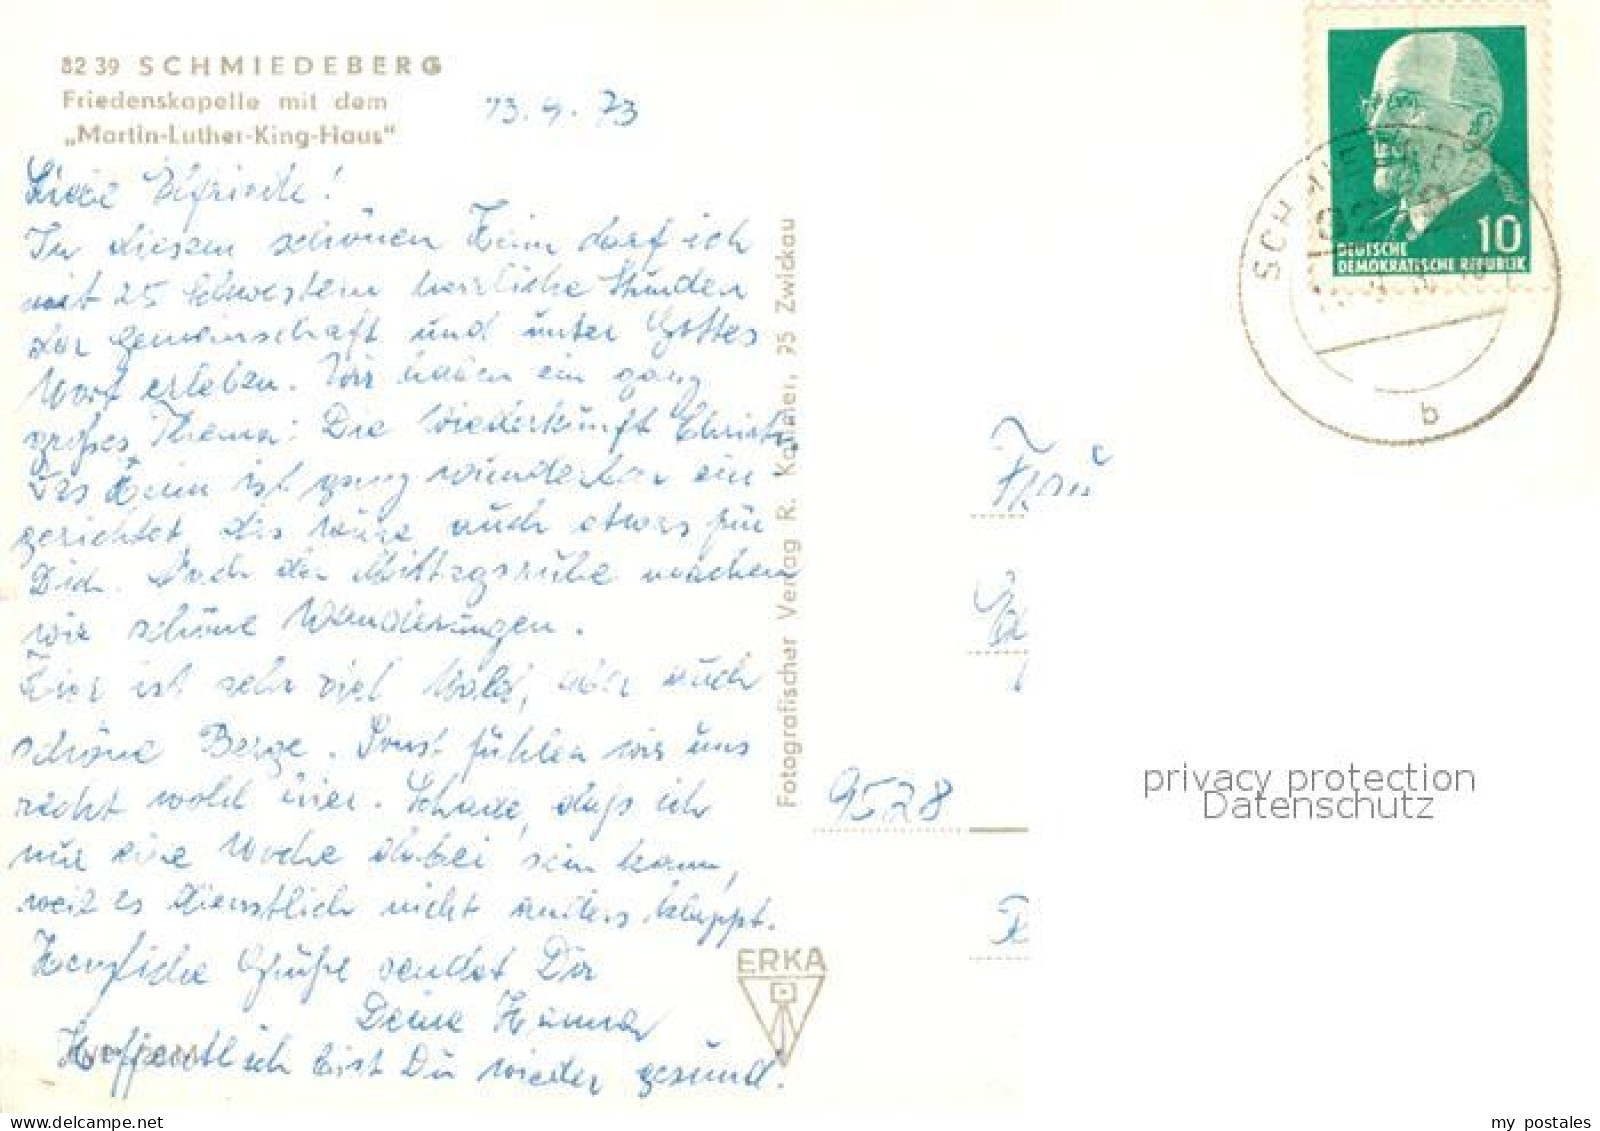 82 39 SCHMIEDEBERG
Friedenskapelle mit dem
„Martin-Luther-King-Haus"
13.4.73
Liebe Elfriede!
In diesem schönen Heim darf ich
mit 25 Schwestern herrliche Stunden
der Gemeinschaft und unter Gottes
Wort erleben. Wir haben ein ganz
großes Thema: Die Wiederkunft Christi.
Das Heim ist ganz wunderbar ein-
gerichtet, das wäre auch etwas für
Dich. Nach der Mittagsruhe machen
wir schöne Wanderungen.
Hier ist sehr viel Wald, aber auch
schöne Berge. Sonst fühlen wir uns
recht wohl hier. Schade, daß ich
nur eine Woche dabei sein kann,
weil es dienstlich nicht anders klappt.
Herzliche Grüße sendet Dir
Deine Hanna
Hoffentlich bist Du wieder gesund!
Fotografischer Verlag R. Kallmer, 95 Zwickau
ERKA
DEUTSCHE
DEMOKRATISCHE REPUBLIK
10
SCHMIEDEBERG
b
Frau
9528
privacy protection
Datenschutz
my postales